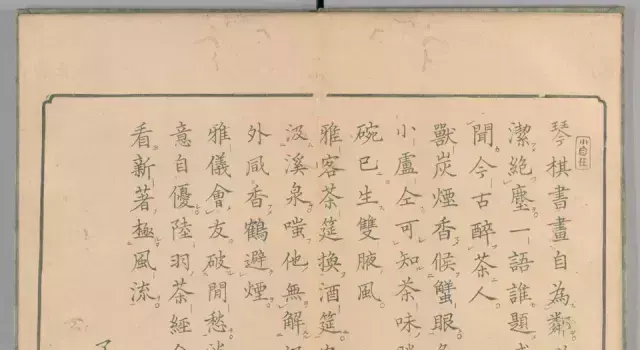 琴棋書畫自為鄰
潔絶塵一語誰題
聞。今古醉茶人。
獸炭煙香候蟹眼
小盧仝可知茶味
碗已生雙腋風。
雅客茶筵換酒筵
汲溪泉嗤他無解
外香鶴避煙。
雅儀會友破閒愁
意自優陸羽茶經
看新著極風流。